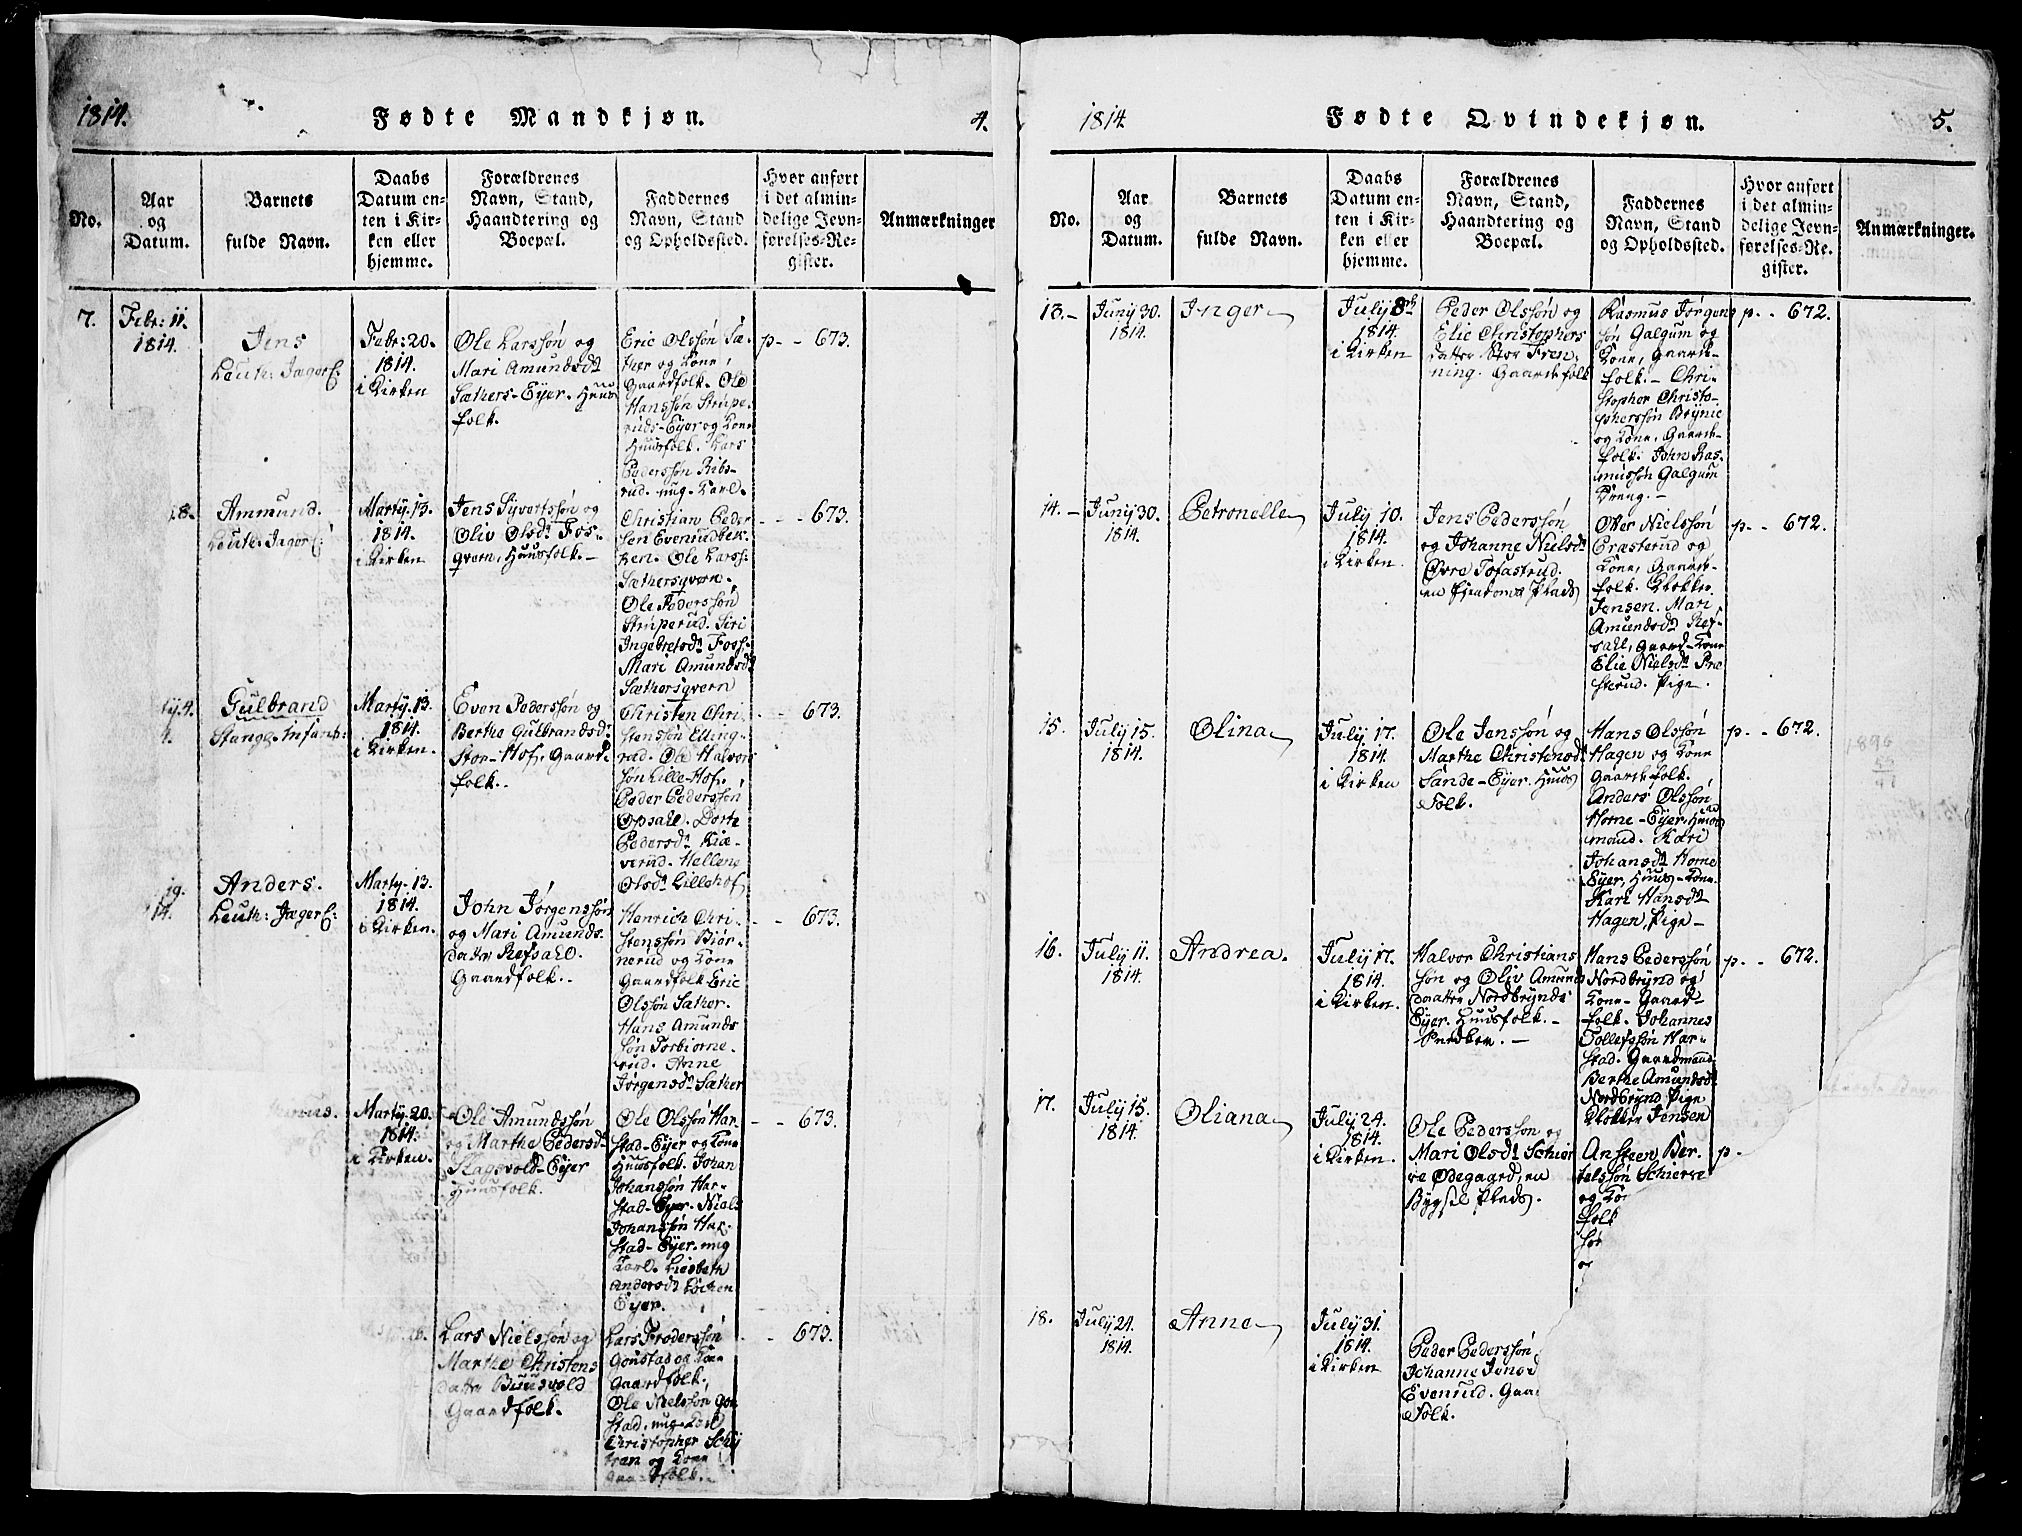 1814.
Fødte Mandkjøn.
4.
No.
Aar
og
Datum.
Barnets
fulde Navn.
Daabs
Datum en-
ten i Kir-
ken eller
hjemme.
Forældrenes
Navn, Stand,
Haandtering og
Boepæl.
Faddernes
Navn, Stand
og Opholdssted.
Hvor anført
i det almin-
delige Jevn-
førelses-Re-
gister.
Anmærkninger
7.
Febr: 11.
1814.
Jens
Leuth: Jæger C:
Febr: 20.
1814.
i Kirken
Ole Larssøn og
Mari Amundsdr
Sæthers-Eyer. Huus
folk.
Eric Olssøn Sæ-
ther og Kone,
Gaardfolk. Ole
Hanssøn Strupe-
ruds-Eyer og Kone
Huusfolk. Lars
Pederssøn Ribs-
rud. ung-Karl.
p- - 673.
8.
Ammund.
Leuth: Jæger C:
Marty. 13.
1814.
i Kirken
Jens Syvertssøn og
Oliv Olsdr Fos-
qvern, Huusfolk.-
Christian Peder
sen Evenrudbek-
ken. Ole Larss.
Sæthersqvern.
Ole Pederssøn
Struperud. Siri
Ingebretsdr Foss.
Mari Amundsdr
Sæthersqvern
- - - 673.
ty. 4.
4.
Gulbrand
Stange-Infant:
Marty. 13.
1814.
i Kirken.
Even Pederssøn og
Berthe Gulbrandsd:
Stor-Hof, Gaard-
folk.
Christen Chri-
stenssøn Elling-
rud. Ole Halvors
søn Lille-Hof.
Peder Pederssøn
Opsahl. Dorte
Pedersdr Kiæ-
verud. Hellene
Olsdr Lillehof
- - 673.
19.
14.
Anders.
Leuth: Jæger C:
Marty. 13.
1814.
i Kirken.
John Jørgenssøn
og Mari Amunds-
datter Refsahl.
Gaardfolk.
Henrich Chri-
stenssøn Biør-
nerud og Kone
Gaardfolk. Eric
Olssøn Sæther.
Hans Amunds
søn Torbiørne-
rud. Anne
Jørgensdr Sæther
- - 673.
Marty. 20.
1814.
i Kirken.
Ole Amundssøn
og Marthe Pedersdr
Flagsvold-Eyer
Huusfolk.
Ole Olssøn Har-
stad-Eyer og Kone
Huusfolk. Johan
Johanssøn Har-
stad-Eyer. Niels
Johanssøn Har-
stad-Eyer. ung
Karl. Liesbeth
Andersdr Løken
Eyer.
- - 673.
Lars Nielssøn og
Marthe Christens
datter Buusvold
Gaardfolk.
Lars Froderssøn
Gonstad og Kone
Gaardfolk.
Ole Nielssøn Gon
stad. ung-Karl
Christopher Schy
tran og Kone
Gaardfolk.
- 673.
1814.
Fødte Qvindekjøn.
5.
No.
Aar
og
Datum.
Barnets
fulde Navn.
Daabs
Datum en-
ten i Kir-
ken eller
hjemme.
Forældrenes
Navn, Stand,
Haandtering og
Boepæl.
Faddernes
Navn, Stand
og Opholdssted.
Hvor anført
i det almin-
delige Jevn-
førelses-Re-
gister.
Anmærkninger.
13.-
Juny 30.
1814.
Inger
July 3
1814.
i Kirken
Peder Olssøn og
Elie Christophers
datter Stor Fren-
ning. Gaardfolk
Rasmus Jørgens
søn Galgum og
Kone, Gaard-
folk.- Chri-
stopher Christo-
pherssøn Brynie
og Kone, Gaard-
folk. John Ras-
mussøn Galgum
Dreng.-
p - - 672.
14.-
Juny 30.
1814.
Petronelle
July 10.
1814.
i Kirken.
Jens Pederssøn
og Johanne Nielsdr
Øvre Tofastrud.
en Eiendoms Plads
Oter Nielssøn
Præsterud og
Kone, Gaard-
folk. Klokker
Jensen. Mari
Amundsdr Ref-
sall, Gaard-Kone
Elie Nielsdr Præ
sterud. Pige.
p- - 672.
15.
July 15.
1814.
Olina
July 17.
1814.
i Kirken
Ole Jenssøn og
Marthe Christensdr
Sande-Eyer. Huus
Folk.
Hans Olssøn
Hagen og Kone
Gaardfolk.
Anders Olssøn
Horne-Eyer, Huus
mand. Kari
Johansdr Horne
Eyer, Huus-Kone.
Kari Hansdr
Hagen, Pige-
p- - 672.
16.
July 11.
1814.
Andrea.
July 17.
1814.
i Kirken.
Halvor Christians
søn og Oliv Amunds
daatter Nordbrynds
Eyer. Huusfolk.-
Hans Pederssøn
Nordbrynd og
Kone- Gaard-
folk. Johannes
Tollefssøn Har-
stad. Gaardmand.
Berthe Amundsdr
Nordbrynd Pige
Klokker Jensen
p- - 672.
17.
July 15.
1814.
Oliana
July 24.
1814.
i Kirken.
Ole Pederssøn og
Mari Olsdr Schier
re Ødegaard, en
Bygsel Plads.
Ansteen Ber-
telssøn Schierre
og Ko
folk
søn
p-
18.
July 24.
1814.
Anne
July 31.
1814.
i Kirken
Peder Pederssøn
Johanne Jensd
Evenrud. Gaa
Folk.